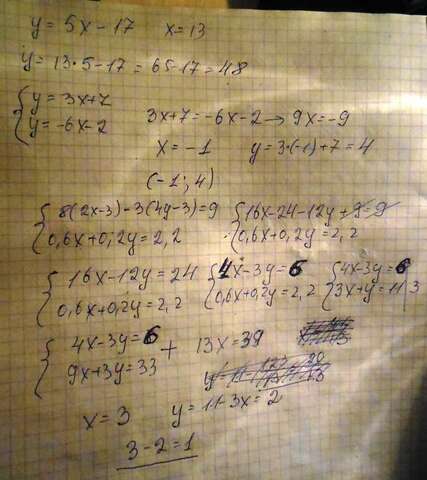 y = 5x - 17 x = 13
y = 13 · 5 - 17 = 65 - 17 = 48
{ y = 3x + 7
{ y = -6x - 2 3x + 7 = -6x - 2 → 9x = -9
x = -1 y = 3·(-1) + 7 = 4
(-1; 4)
{ 8(2x - 3) - 3(4y - 3) = 9 { 16x - 24 - 12y + 9 = 9
{ 0,6x + 0,2y = 2,2 { 0,6x + 0,2y = 2,2
{ 16x - 12y = 24 { 4x - 3y = 6 { 4x - 3y = 6
{ 0,6x + 0,2y = 2,2 { 0,6x + 0,2y = 2,2 { 3x + y = 11 | 3
{ 4x - 3y = 6
{ 9x + 3y = 33 + 13x = 39
x = 3 y = 11 - 3x = 2
3 - 2 = 1